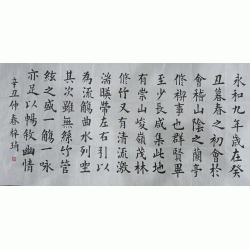 永和九年歲在癸
丑暮春之初會於
會稽山陰之蘭亭
修禊事也群賢畢
至少長咸集此地
有崇山峻嶺茂林
修竹又有清流激
湍暎帶左右引以
為流觴曲水列坐
其次雖無絲竹管
絃之盛一觴一咏
亦足以暢敘幽情
辛丑仲春梓琦